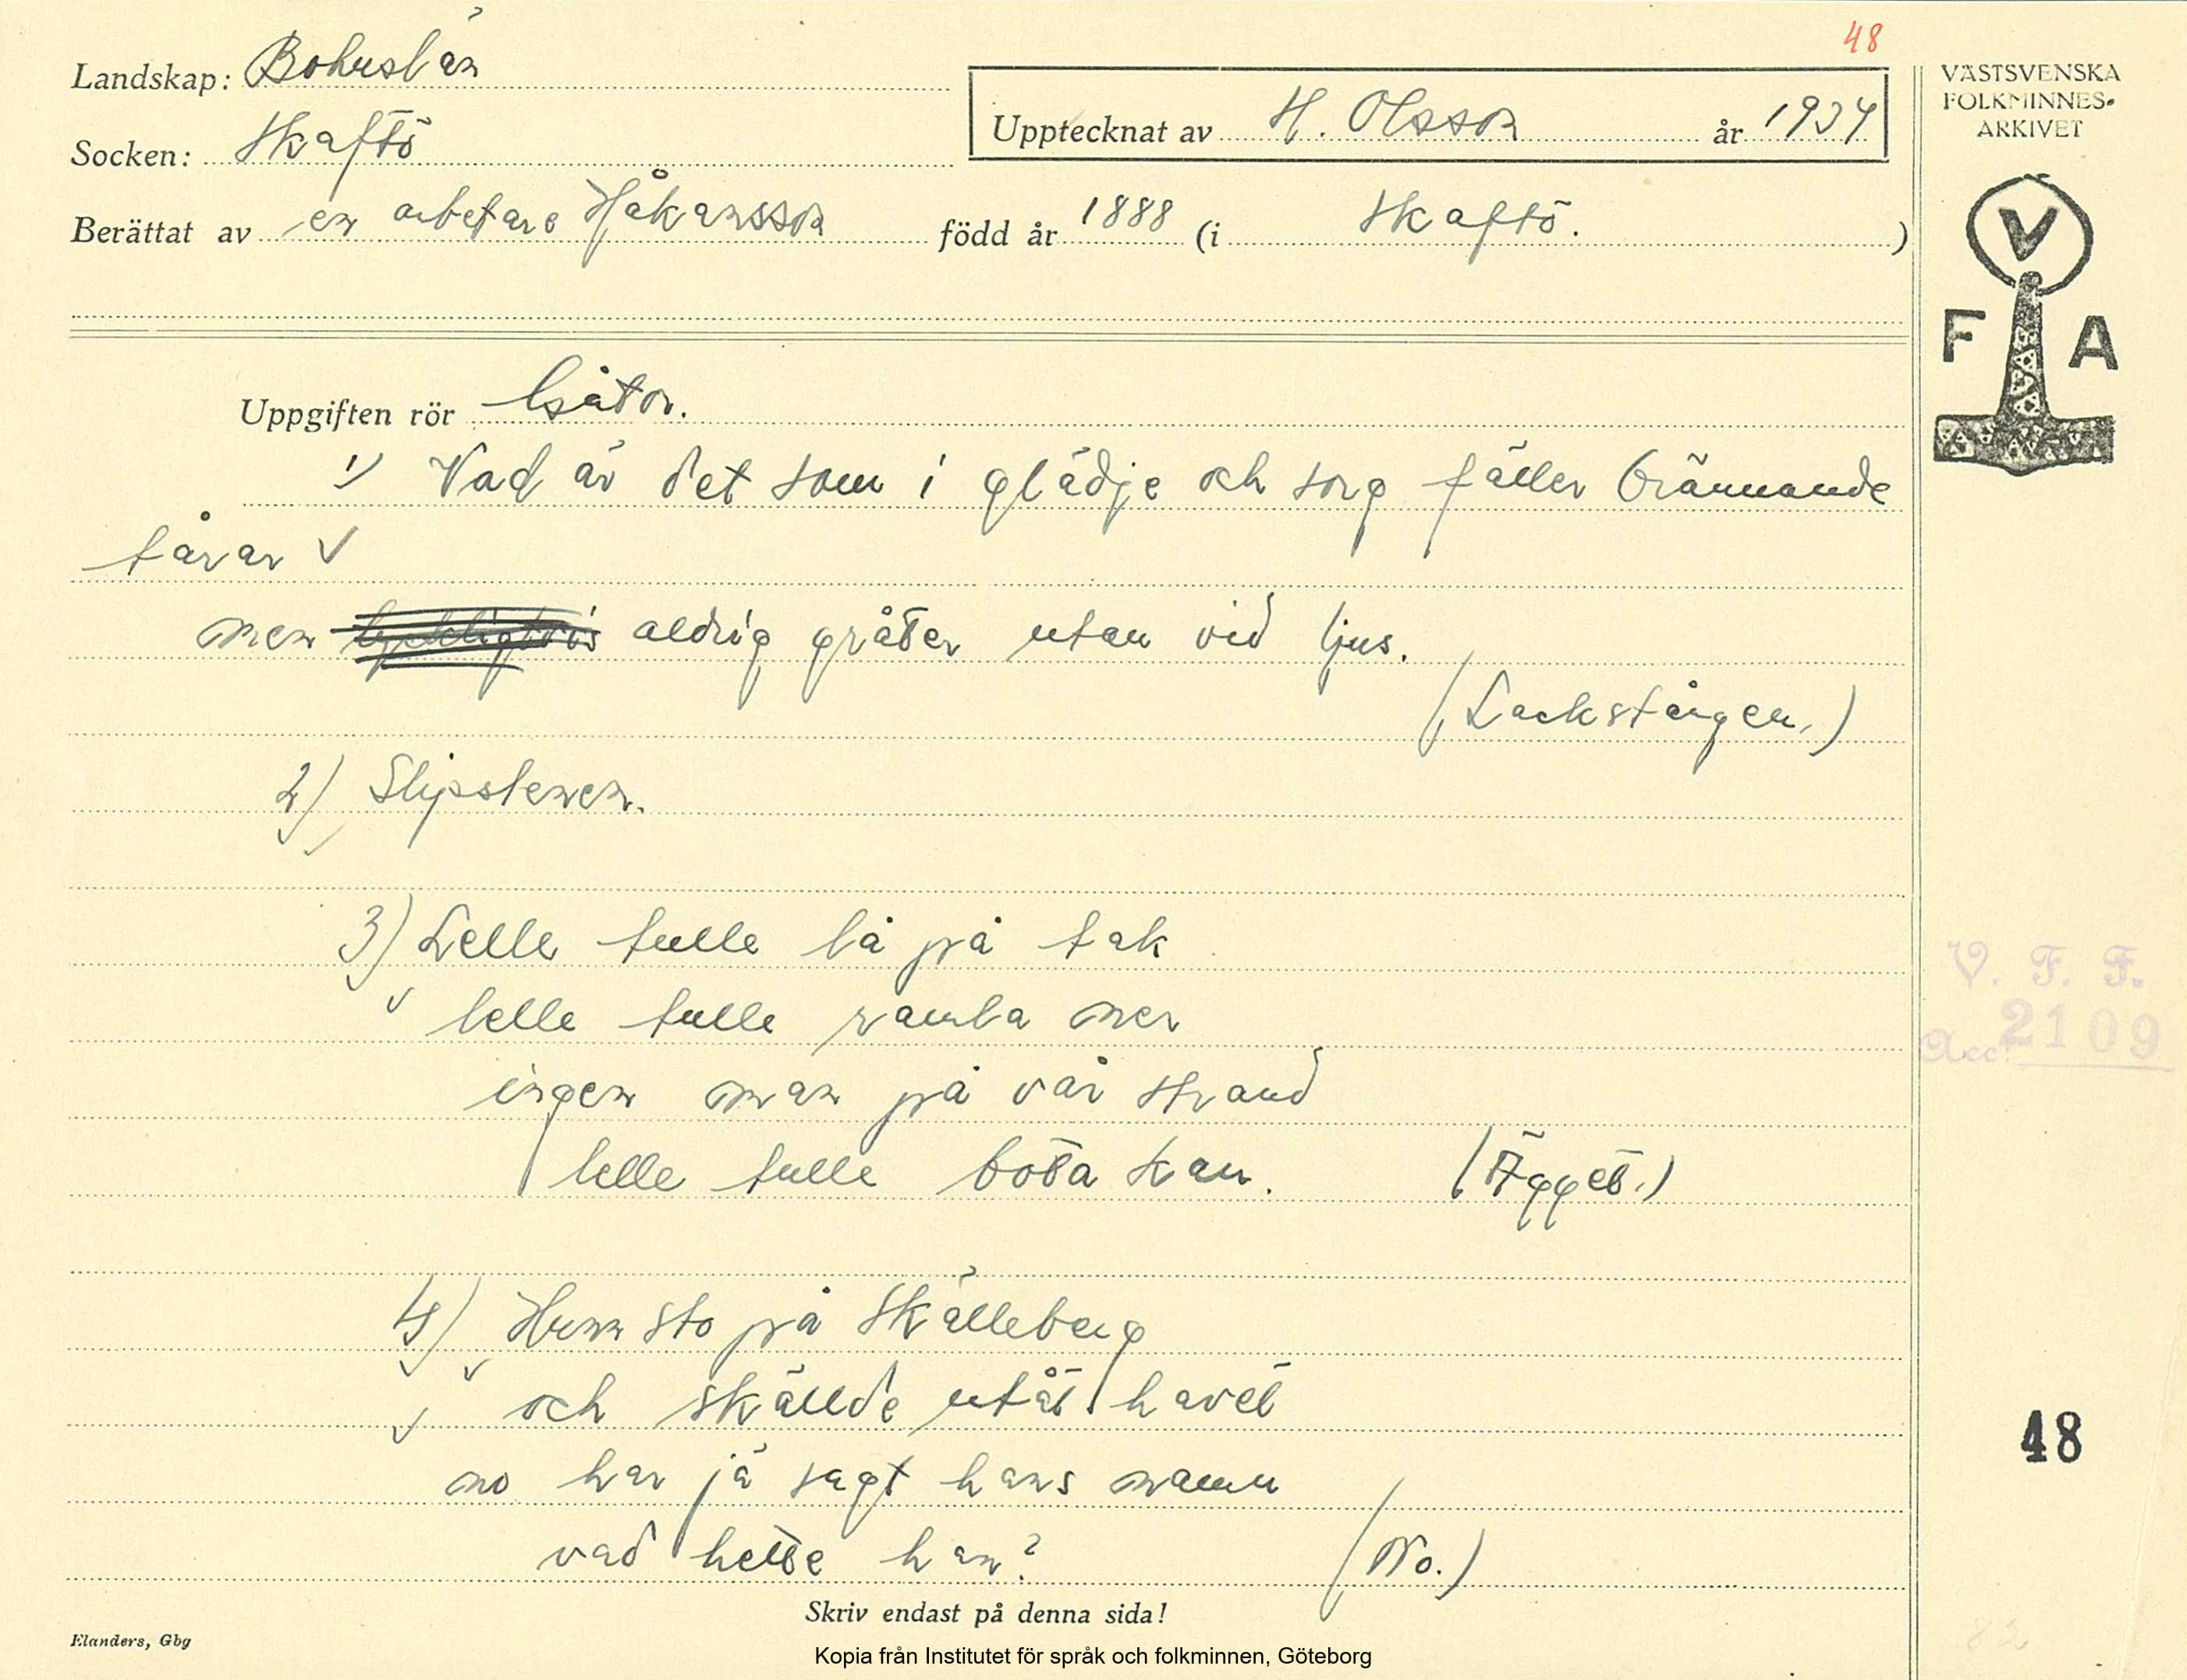 48
Landskap: Bohuslän
Socken: Skaftö
Upptecknat av H. Olsson år 1934
Berättat av en arbetare Håkansson född år 1888 (i Skaftö.)
VÄSTSVENSKA
FOLKMINNES-
ARKIVET
V
F A
Uppgiften rör Gåtor.
1) Vad är det som i glädje och sorg fäller brännande
tårar
men lyckligtvis aldrig gråter utan vid ljus.
(Lackstången.)
2) Slipstenen.
3) Lelle tulle lå på tak
lelle tulle ramla ner
ingen man på vår strand
lelle tulle bota kan. (Ägget.)
4) Hunn sto på Skälleberg
och skällde utåt havet
no har jä sagt hans namn
vad hette han? (No.)
V. F. F.
Acc. 2109
48
Skriv endast på denna sida!
Elanders, Gbg
Kopia från Institutet för språk och folkminnen, Göteborg